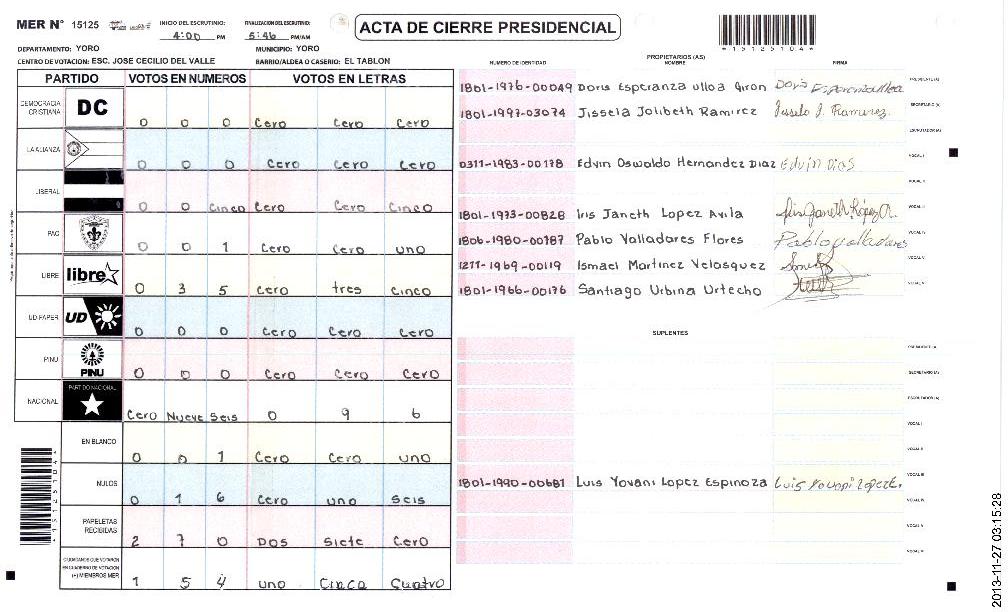 MER N° 15125
INICIO DEL ESCRUTINIO: 4:00 PM
FINALIZACIÓN DEL ESCRUTINIO: 5:46 PM/AM
ACTA DE CIERRE PRESIDENCIAL
*15125104*
DEPARTAMENTO: YORO
MUNICIPIO: YORO
CENTRO DE VOTACION: ESC. JOSE CECILIO DEL VALLE
BARRIO/ALDEA O CASERIO: EL TABLON
PARTIDO VOTOS EN NUMEROS VOTOS EN LETRAS
DEMOCRACIA CRISTIANA DC 0 0 0 Cero Cero Cero
LA ALIANZA 0 0 0 Cero Cero Cero
LIBERAL 0 0 Cinco Cero Cero Cinco
PAC 0 0 1 Cero Cero uno
LIBRE libre 0 3 5 Cero tres Cinco
UD FAPER UD 0 0 0 Cero Cero Cero
PINU PINU 0 0 0 Cero Cero Cero
NACIONAL PARTIDO NACIONAL Cero Nueve Seis 0 9 6
EN BLANCO 0 0 1 Cero Cero uno
NULOS 0 1 6 Cero uno Seis
PAPELETAS RECIBIDAS 2 7 0 Dos Siete Cero
CIUDADANOS QUE VOTARON EN CUADERNO DE VOTACION (+) MIEMBROS MER 1 5 4 uno Cinco Cuatro
*15125104*
PROPIETARIOS (AS)
NUMERO DE IDENTIDAD NOMBRE FIRMA
1801-1976-00049 Doris Esperanza ulloa Giron Doris Esperanza ulloa PRESIDENTE (A)
1801-1997-03074 Jissela Jolibeth Ramirez Jissela J. Ramirez. SECRETARIO (A)
ESCRUTADOR (A)
0311-1983-00178 Edvin Oswaldo Hernandez Diaz Edvin Dias VOCAL I
VOCAL II
1801-1973-00828 Iris Janeth Lopez Avila VOCAL III
1806-1980-00187 Pablo Valladares Flores Pablo valladares VOCAL IV
1277-1969-00119 Ismael Martinez Velasquez VOCAL V
1801-1966-00176 Santiago Urbina Urtecho VOCAL VI
SUPLENTES
PRESIDENTE (A)
SECRETARIO (A)
ESCRUTADOR (A)
VOCAL I
VOCAL II
1801-1990-00681 Luis Yovani Lopez Espinoza Luis Yovani Lopez E. VOCAL III
VOCAL IV
VOCAL V
VOCAL VI
2013-11-27 03:15:28